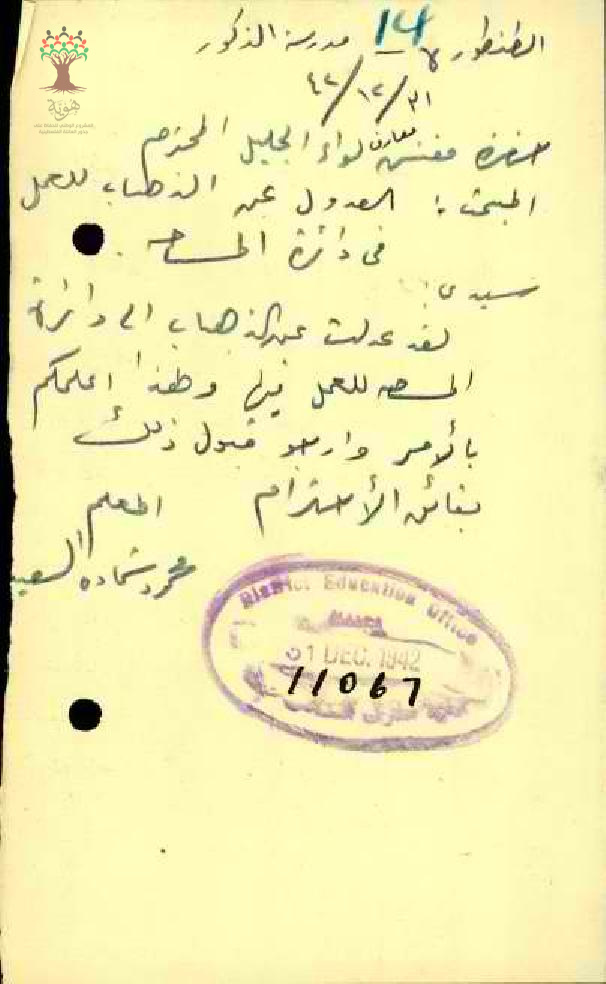 14
الطنطوره مدرسة الذكور
٣١/١٢/٤٢
حضرة مفتش معارف لواء الجليل المحترم
المبحث: العدول عن الذهاب للعمل
في دائرة المساحه.
سيدي:
لقد عدلت عن الذهاب الى دائرة
المساحه للعمل فيها ولهذا اعلمكم
بالأمر وارجو قبول ذلك
بفائق الأحترام المعلم
محمود شحاده السعيد
District Education Office
31 DEC. 1942
11067
هوية